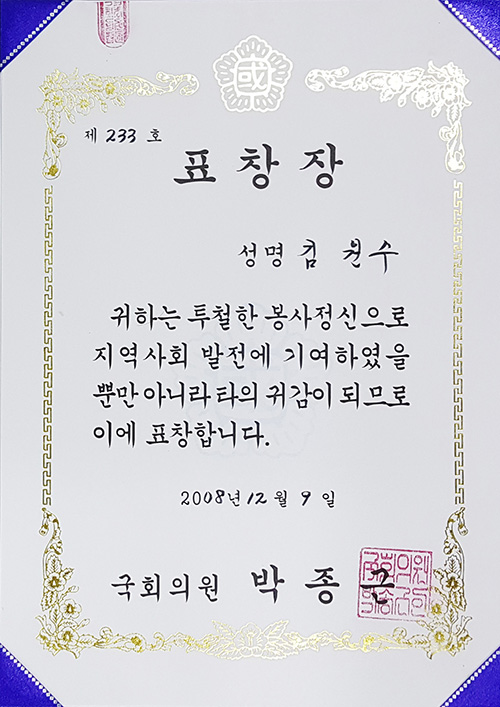 國
제 233 호
표창장
성명 김 원수
귀하는 투철한 봉사정신으로
지역사회 발전에 기여하였을
뿐만 아니라 타의 귀감이 되므로
이에 표창합니다.
2008년 12월 9일
국회의원 박종근